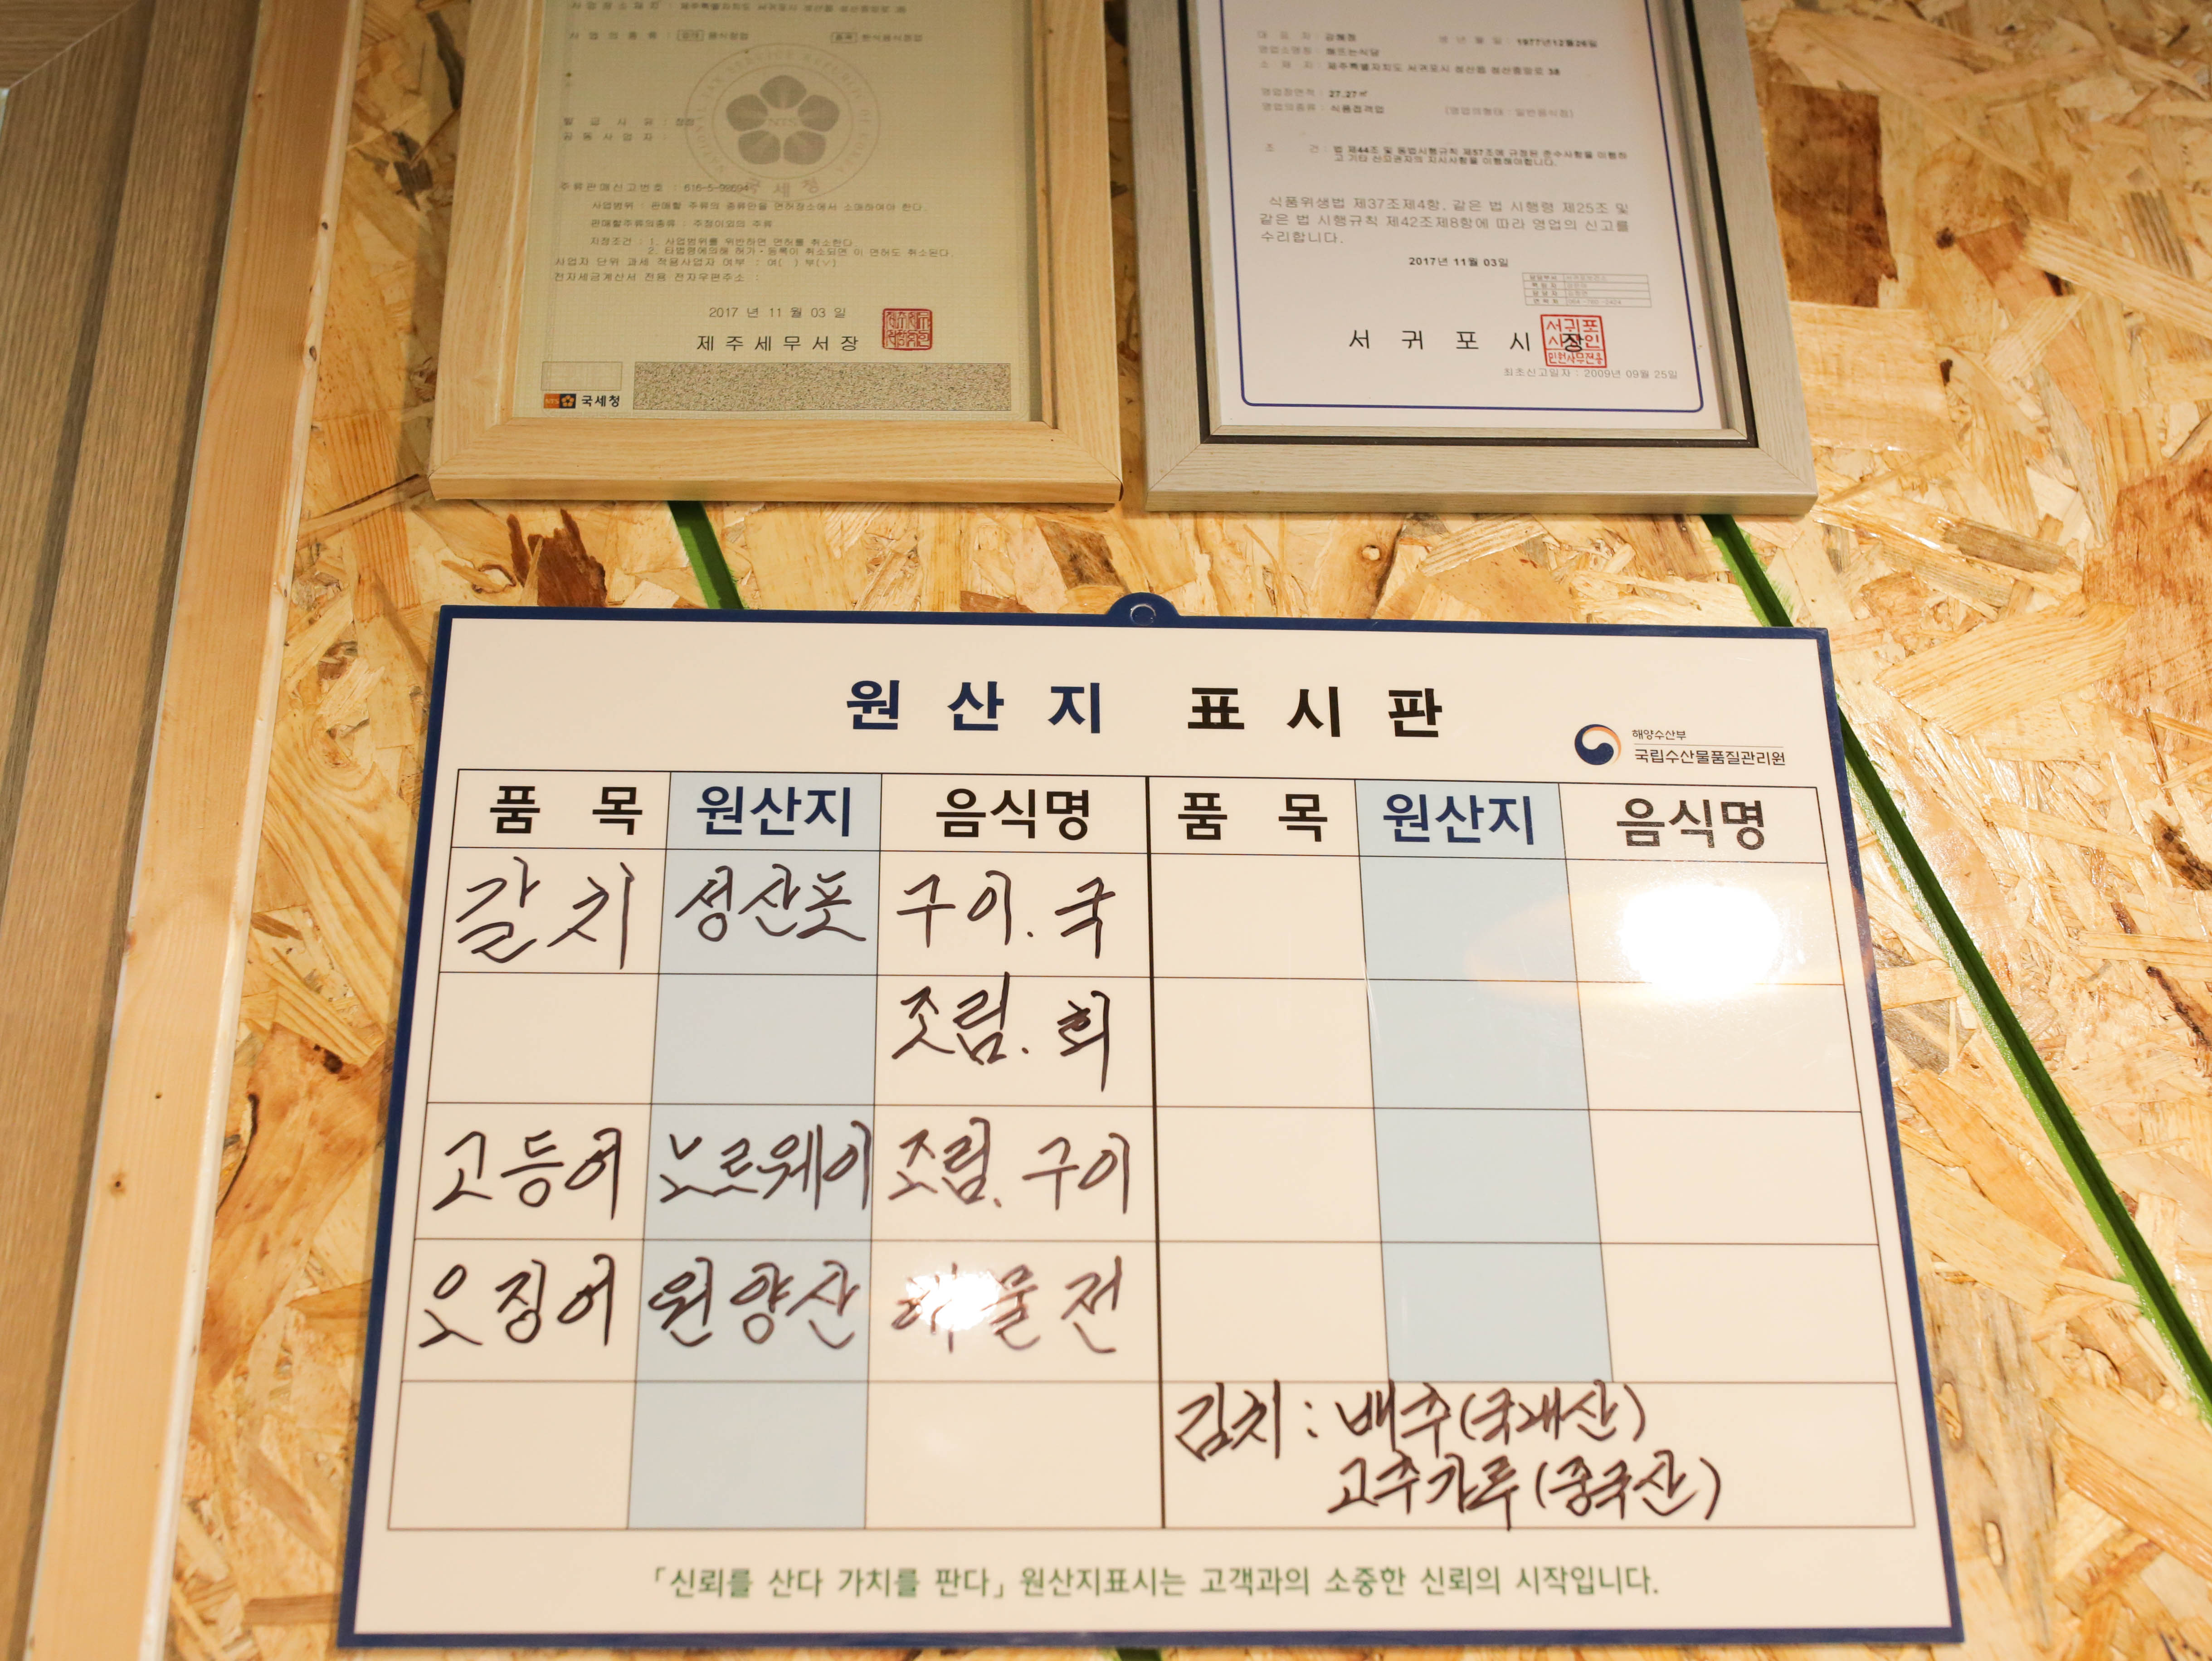 사업장소재지 : 제주특별자치도 서귀포시 성산읍 성산중앙로 38
사업의종류 : 업태 음식점업 종목 한식음식점업
발급사유 : 정정
공동사업자 :
주류판매신고번호 : 616-5-98694
사업범위 : 판매할 주류의 종류만을 면허장소에서 소매하여야 한다.
판매할주류의종류 : 주정이외의 주류
지정조건 : 1. 사업범위를 위반하면 면허를 취소한다
2. 타법령에의해 허가·등록이 취소되면 이 면허도 취소된다.
사업자 단위 과세 적용사업자 여부 : 여( ) 부(∨)
전자세금계산서 전용 전자우편주소 :
국세청
2017 년 11 월 03 일
제주세무서장
NTS 국세청
대표자 : 김혜정 생년월일 : 1977년12월26일
영업소명칭 : 해뜨는식당
소재지 : 제주특별자치도 서귀포시 성산읍 성산중앙로 38
영업장면적 : 27.27㎡
영업의종류 : 식품접객업 (영업의형태 : 일반음식점)
조건 : 법 제44조 및 동법시행규칙 제57조에 규정된 준수사항을 이행하
고 기타 신고관자의 지시사항을 이행해야합니다.
식품위생법 제37조제4항, 같은 법 시행령 제25조 및
같은 법 시행규칙 제42조제8항에 따라 영업의 신고를
수리합니다.
2017년 11월 03일
서귀포시장
서귀포
시장인
민원사무전용
최초신고일자 : 2009년 09월 25일
원산지 표시판
해양수산부
국립수산물품질관리원
품목 원산지 음식명 품목 원산지 음식명
갈치 성산포 구이. 국
조림. 회
고등어 노르웨이 조림. 구이
오징어 원양산 해물전
김치 : 배추(국내산)
고추가루(중국산)
「신뢰를 산다 가치를 판다」 원산지표시는 고객과의 소중한 신뢰의 시작입니다.